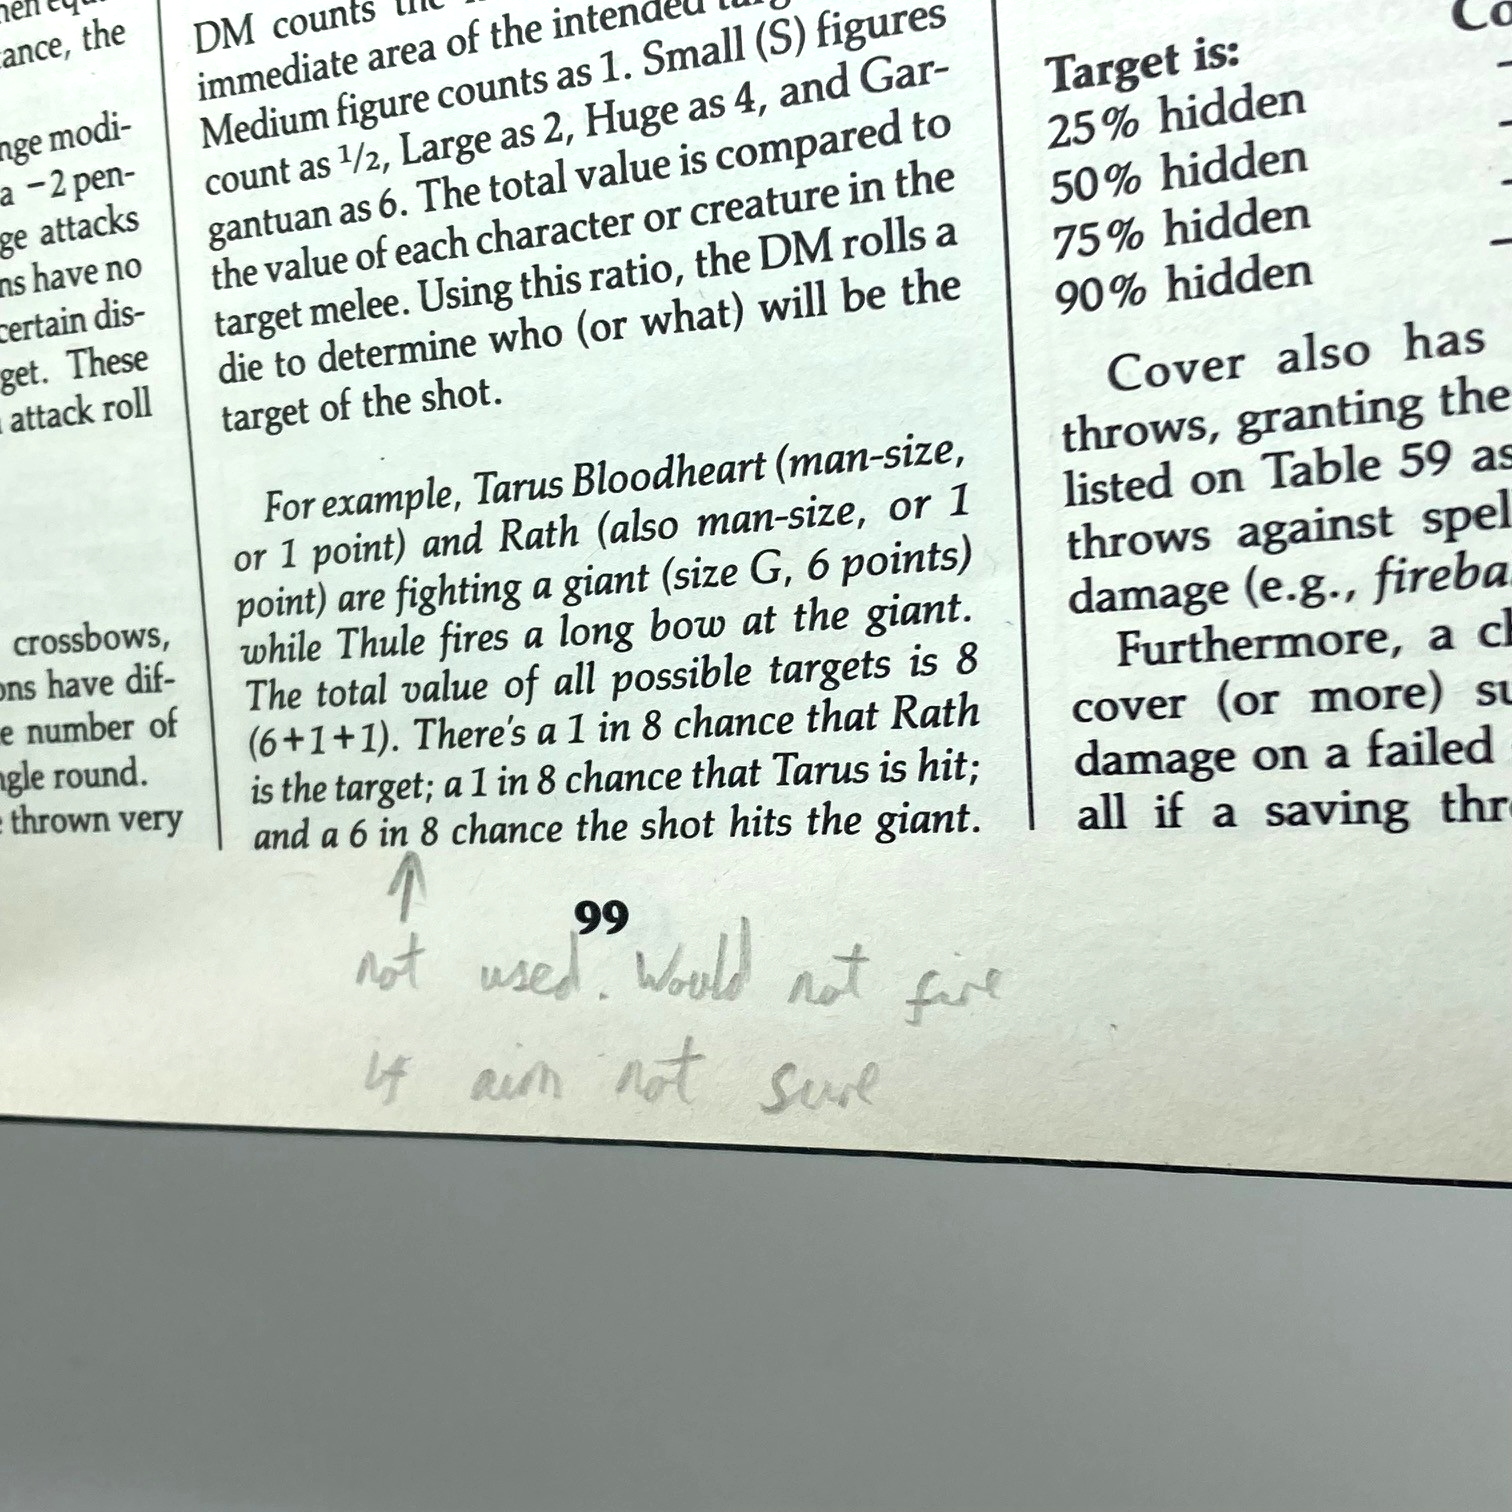 ance, the
nge modi-
a −2 pen-
ge attacks
ns have no
certain dis-
get. These
attack roll
crossbows,
ons have dif-
e number of
ngle round.
thrown very
DM counts
immediate area of the intended
Medium figure counts as 1. Small (S) figures
count as 1/2, Large as 2, Huge as 4, and Gar-
gantuan as 6. The total value is compared to
the value of each character or creature in the
target melee. Using this ratio, the DM rolls a
die to determine who (or what) will be the
target of the shot.
For example, Tarus Bloodheart (man-size,
or 1 point) and Rath (also man-size, or 1
point) are fighting a giant (size G, 6 points)
while Thule fires a long bow at the giant.
The total value of all possible targets is 8
(6+1+1). There's a 1 in 8 chance that Rath
is the target; a 1 in 8 chance that Tarus is hit;
and a 6 in 8 chance the shot hits the giant.
Target is:
25% hidden
50% hidden
75% hidden
90% hidden
Cover also has
throws, granting the
listed on Table 59 as
throws against spel
damage (e.g., fireba
Furthermore, a ch
cover (or more) su
damage on a failed
all if a saving thro
99
not used. Would not fire
if aim not sure